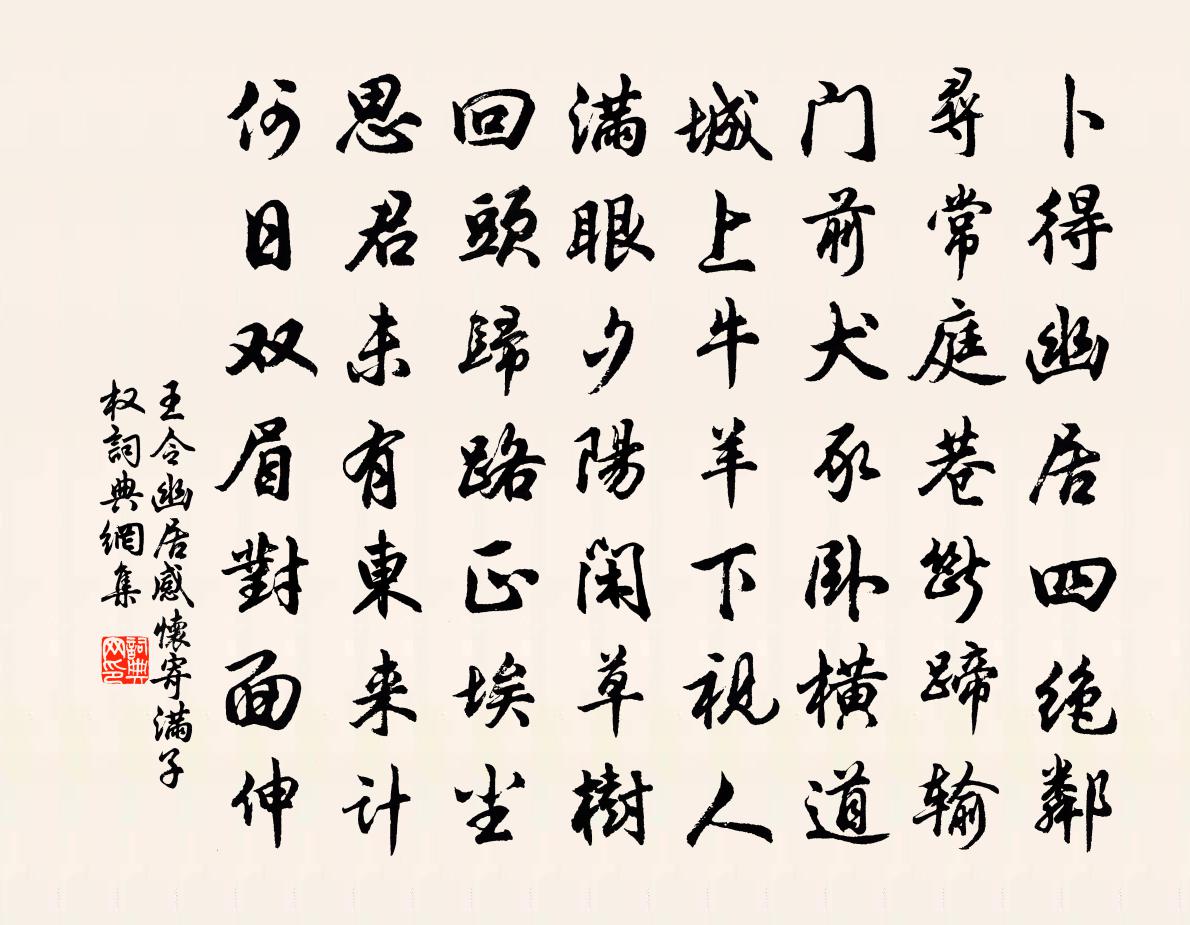 卜得幽居四绝鄰
尋常庭巷斷蹄输
门前犬豕卧横道
城上牛羊下視人
滿眼夕陽闲草樹
回頭歸路正埃尘
思君未有東来计
何日双眉對面伸
王令幽居感懷寄滿子
权詞典網集
詞典网印